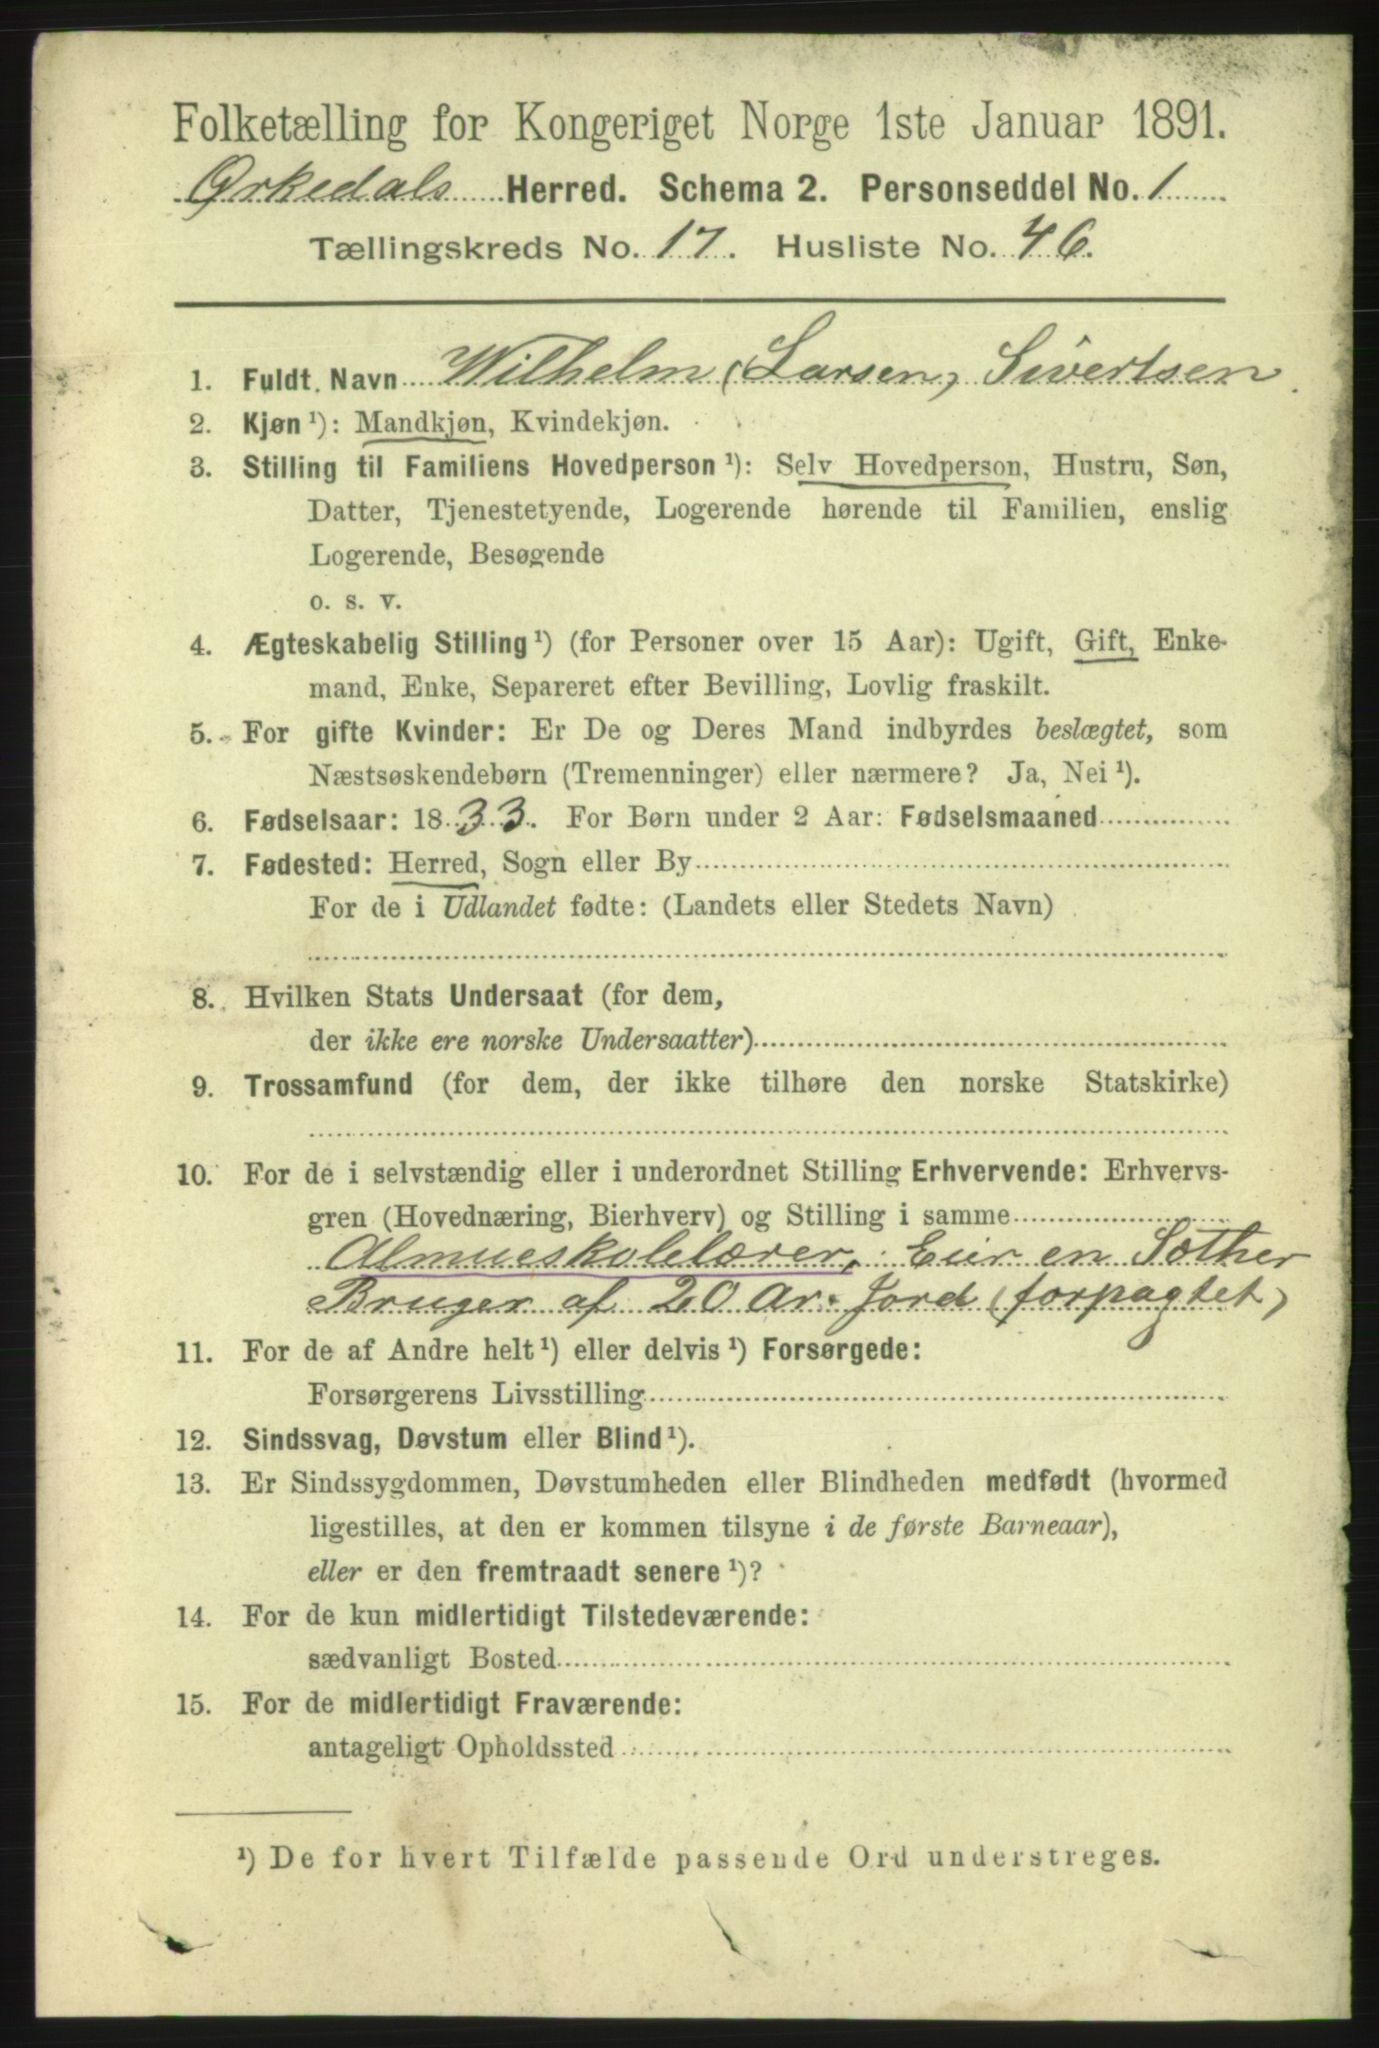 Folketælling for Kongeriget Norge 1ste Januar 1891.
Ørkedals Herred. Schema 2. Personseddel No. 1
Tællingskreds No. 17. Husliste No. 46.
1. Fuldt Navn Wilhelm (Larsen) Sivertsen
2. Kjøn ¹): Mandkjøn, Kvindekjøn.
3. Stilling til Familiens Hovedperson ¹): Selv Hovedperson, Hustru, Søn,
Datter, Tjenestetyende, Logerende hørende til Familien, enslig
Logerende, Besøgende
o. s. v.
4. Ægteskabelig Stilling ¹) (for Personer over 15 Aar): Ugift, Gift, Enke-
mand, Enke, Separeret efter Bevilling, Lovlig fraskilt.
5. For gifte Kvinder: Er De og Deres Mand indbyrdes beslægtet, som
Næstsøskendebørn (Tremenninger) eller nærmere? Ja, Nei ¹).
6. Fødselsaar: 1833. For Børn under 2 Aar: Fødselsmaaned
7. Fødested: Herred, Sogn eller By
For de i Udlandet fødte: (Landets eller Stedets Navn)
8. Hvilken Stats Undersaat (for dem,
der ikke ere norske Undersaatter)
9. Trossamfund (for dem, der ikke tilhøre den norske Statskirke)
10. For de i selvstændig eller i underordnet Stilling Erhvervende: Erhvervs-
gren (Hovednæring, Bierhverv) og Stilling i samme
Almueskolelærer, Eier en Sæther
Bruger af 20 Ar. Jord (forpagtet)
11. For de af Andre helt ¹) eller delvis ¹) Forsørgede:
Forsørgerens Livsstilling
12. Sindssvag, Døvstum eller Blind ¹).
13. Er Sindssygdommen, Døvstumheden eller Blindheden medfødt (hvormed
ligestilles, at den er kommen tilsyne i de første Barneaar),
eller er den fremtraadt senere ¹)?
14. For de kun midlertidigt Tilstedeværende:
sædvanligt Bosted
15. For de midlertidigt Fraværende:
antageligt Opholdssted
¹) De for hvert Tilfælde passende Ord understreges.